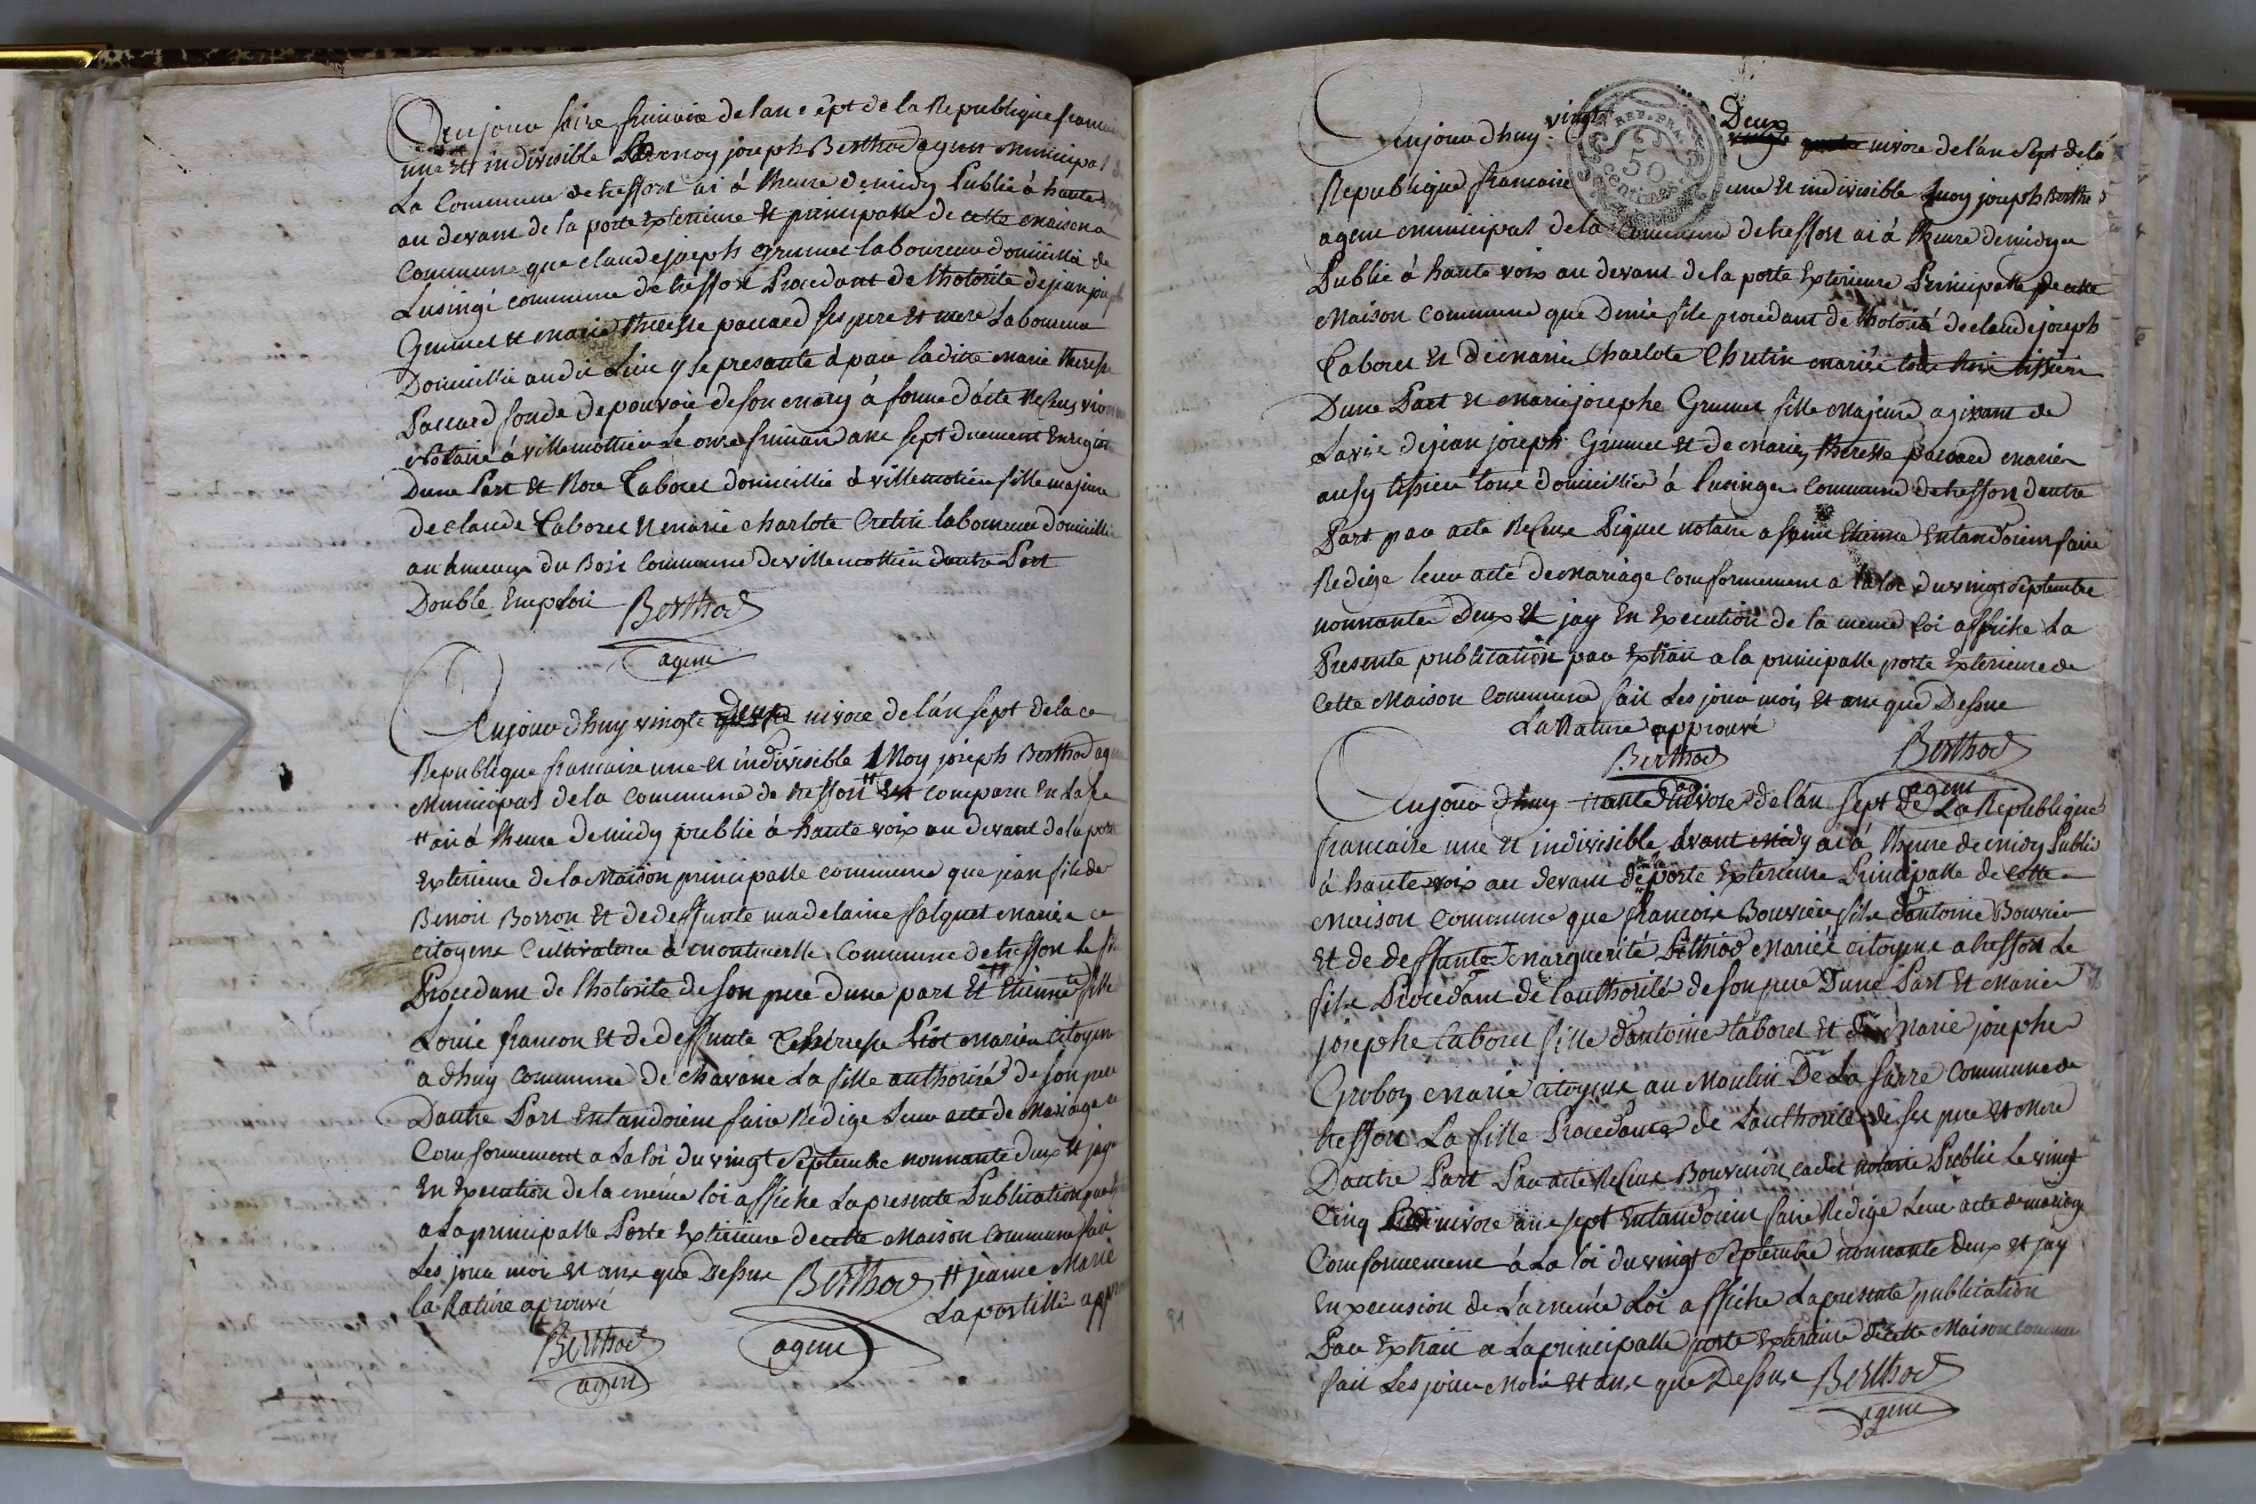 Cejour saize frimaire de lan sept de la Republique francaise
une et indivisible moy joseph Berthod agent municipal de
La Commune de heffort ai à l'heure de midy Publié à haute voix
au devant de la porte Exterieure et principalle de cette maison
Commune que claude joseph Grumet laboureur domicillié de
Lusingé commune de heffort Procedant de lhotorité de jean joseph
Grumet et marie theresse paccard ses pere et mere Laboureur
Domicillié audit Lieu y se presante à par ladite marie theresse
Paccard fonde de pouvoir de son mary à forme d'acte Reçeus
Notaire à villemottier Le onze frimaire ans sept duement Enregistré
Dune Part et Rose Taboret domicillié à villemotier fille majeure
de claude Taboret et marie charlote Cretin laboureur domicillié
au hmeaux du Bois Commune de villemottier dautre Part
Double Emploi Berthod
agent
Aujourdhuy vingte Deux nivose de lán sept de la
Republique francaise une et indivisible Moy joseph Berthod agent
Municipal de la commune de heffort Est comparu En la
# ai à l'heure de midy publié à haute voix au devant de la porte
Exterieure de la Maison principalle commune que jean fils de
Benoit Borron Et de deffunte madelaine falquet mariée
citoyens Cultivateur à montmerlle Commune de heffort le fils
Procedant de lhotorité de son pere dune part Et Etienne # fille
Louis francon Et de deffunte Thérese Piot mariéa Citoyen
a dhuy commune de chavane La fille authorisé de son pere
Dautre Part Entandoient faire Redige Leur acte de Mariage
Comformement a La loi du vingt Septembre nonnante Deux et jay
En Execution de la meme loi affiche La presente Publication par
a La principalle Porte Exterieure de cette Maison Commune fait
Les jour moi et ans que Dessus Berthod # jeanne Marie
la Rature aprouvé Lapostille
Berthod agent
agent
Aujourdhuy vingt Deux nivose de lán Sept de la
REP. FRA. 50 centimes
Republique francaise une et indivisible Moy joseph Berthod
agent municipal de la Commune de heffort ai à l'heure de midy
Publié à haute voix au devant de la porte Exterieure Principalle de cette
Maison Commune que Denis fils procedant de lhotorité de claude joseph
Taboret Et de marie Charlote Chretin mariés
Dune Part et marie josephe Grumet fille majeure agissant de
Lavie de jean joseph Grumet et de marie theresse paccard mariés
ausy tissieu tous domicillié à Lusinge Commune de heffort dautre
Part par acte Reçeus Piquet notaire a saint Etienne Entandoient faire
Redige leur acte de mariage comformement a la loi du vingt Septembre
nonnante Deux Et jay En Execution de la meme loi affiche La
Presente publication par Extrait a la principalle porte Exterieure de
cette Maison Commune fait Les jour mois et ans que Dessus
La Rature approuvé
Berthod Berthod
agent
Aujourdhuy nivose de lán sept de La Republique
francaise une et indivisible avant midy ai à l'heure de midy Publié
à haute voix au devant de la porte Exterieure Principalle de cette
maison Commune que francois Bouvier fils dantoine Bouvier
et de deffunte marguerite Pethiod Mariée citoyens a heffort Le
fils Procedant de lauthorité de son pere Dune Part Et Marie
josephe taboret fille dantoine taboret et de Marie josephe
Grobon mariés citoyens au Moulin De La farre Commune de
heffort La fille Procedante de Lauthorité de ses pere et Mere
Dautre Part Par acte Reçeus Bouvier cadet notaire Public Le vingt
Cinq nivose ans sept Entandoient faire Redige Leur acte de mariage
Comformement à La loi du vingt Septembre nonnante deux et jay
En execusion de La meme Loi affiche La presente publication
Par Extrait a La principalle porte Exteraire de cette Maison commune
fait Les jour Mois Et ans que Dessus Berthod
agent